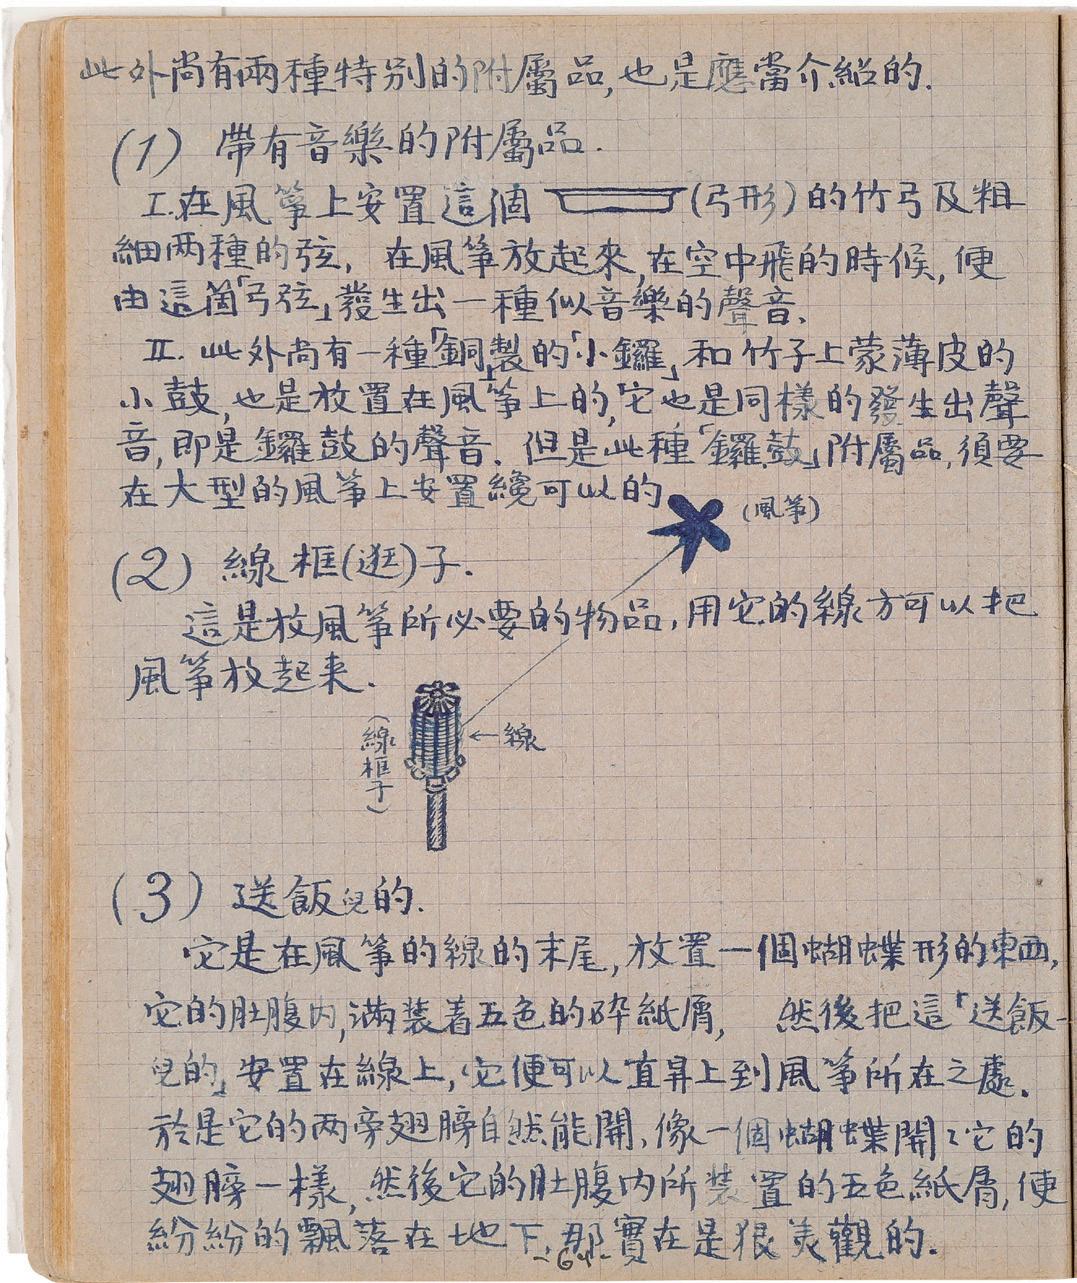 此外尚有兩種特別的附屬品,也是應當介紹的.
(1) 帶有音樂的附屬品.
I.在風箏上安置這個 (弓形)的竹弓及粗
細兩種的弦, 在風箏放起來,在空中飛的時候,便
由這箇「弓弦」發生出一種似音樂的聲音.
II. 此外尚有一種「銅」製的「小鑼」和竹子上蒙薄皮的
小鼓,也是放置在風箏上的,它也是同樣的發生出聲
音,即是鑼鼓的聲音. 但是此種「鑼鼓」附屬品,須要
在大型的風箏上安置纔可以的
(風箏)
(2) 線框(逛)子.
這是放風箏所必要的物品,用它的線方可以把
風箏放起来.
(線框子)
←線
(3) 送飯兒的.
它是在風箏的線的末尾,放置一個蝴蝶形的東西,
它的肚腹内,滿装着五色的碎紙屑, 然後把這「送飯-
兒的」安置在線上,它便可以直昇上到風箏所在之處.
於是它的两旁翅膀自然能開,像一個蝴蝶開了它的
翅膀一樣,然後它的肚腹内所装置的五色紙屑,便
紛紛的飄落在地下,那實在是狠美觀的.
-64-